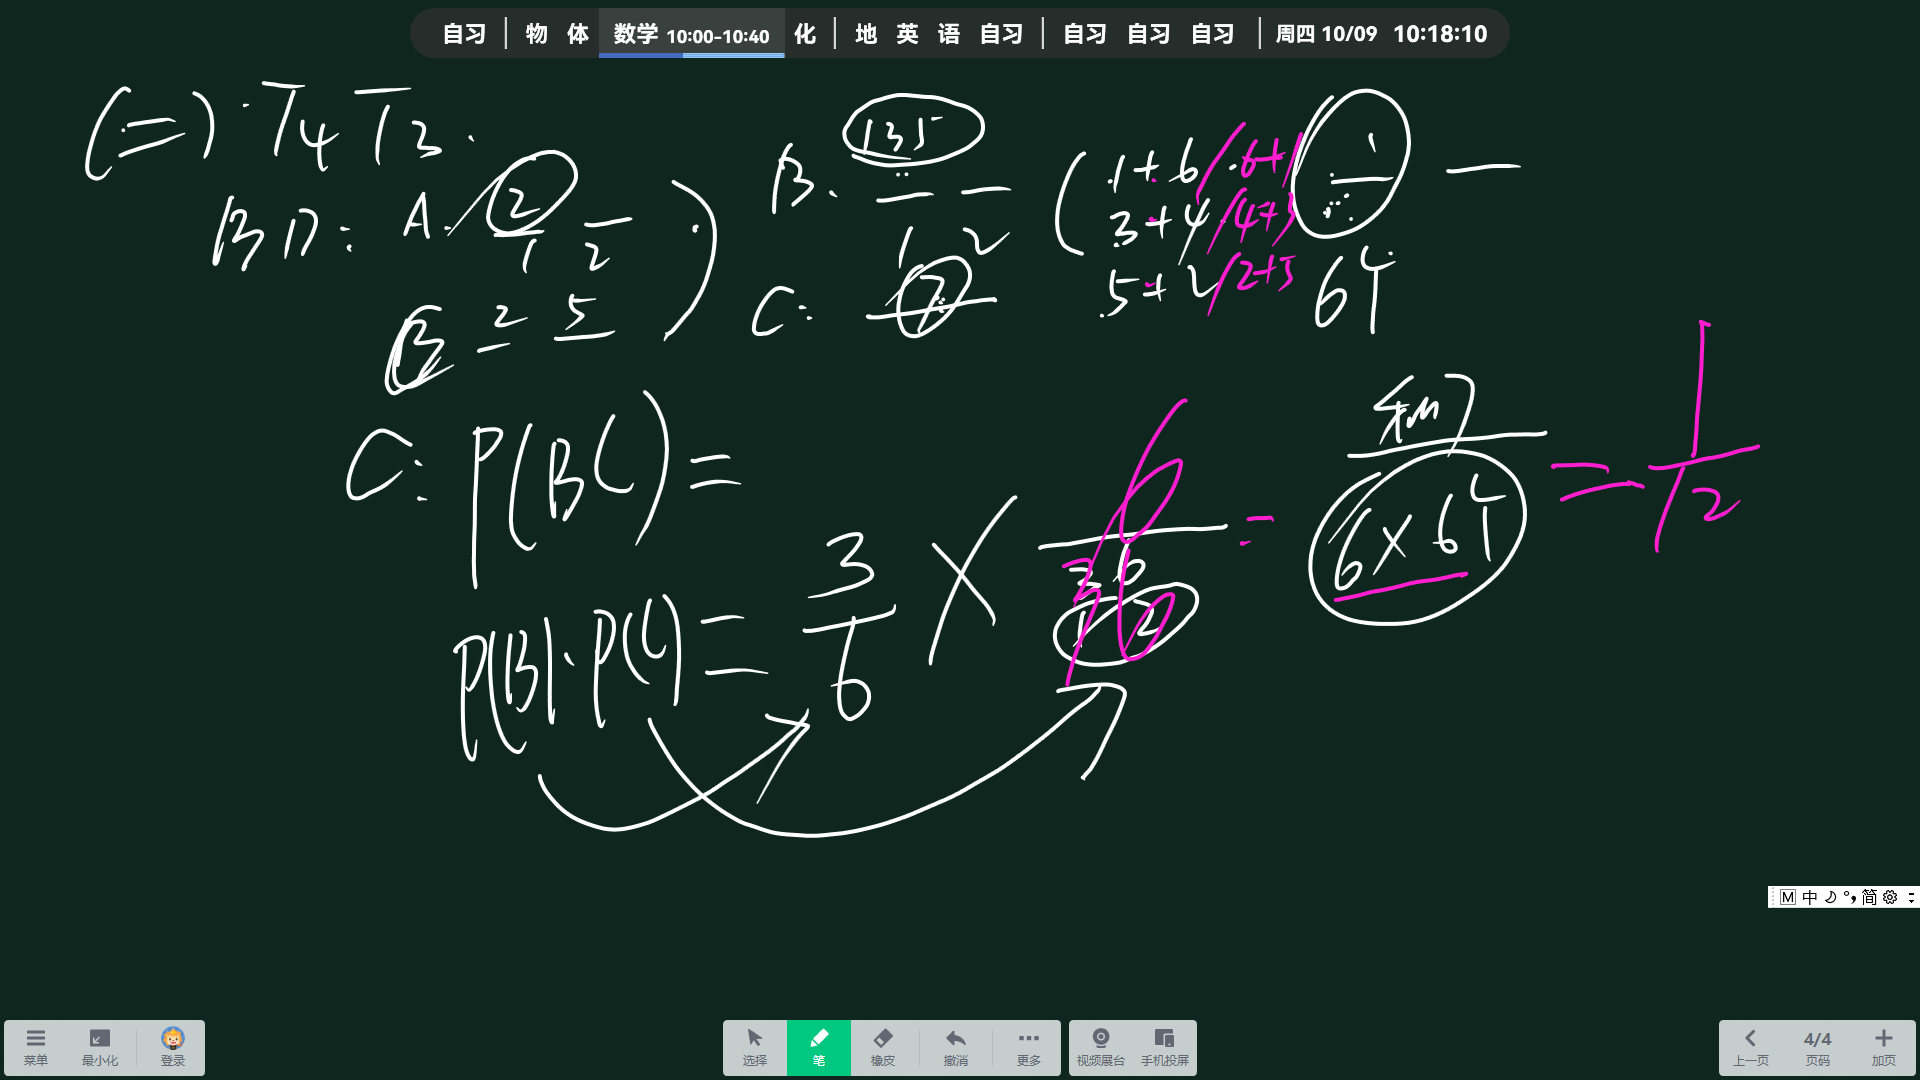 自习 | 物 体 数学 10:00-10:40 化 | 地 英 语 自习 | 自习 自习 自习 | 周四 10/09 10:18:10
(二)·T4 T3.
BD: A. 2
1 2
B 2 5
B. 135
1 2
C: 7
1+6 / 6+1
3+4 / 4+3
5+2 / 2+5
64
C: P(BC) =
P(B)·P(C) = 3/6 ×
36
12
= 和7
6×64
= 1/12
M 中 简
菜单 最小化 登录
选择 笔 橡皮 撤消 更多
视频展台 手机投屏
上一页 4/4 页码 加页